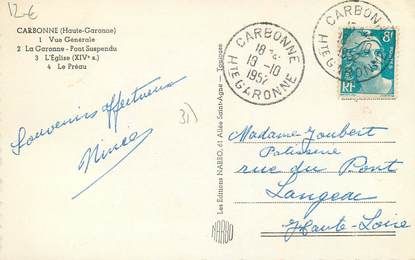 12-€
CARBONNE (Haute-Garonne)
1 Vue Générale
2 La Garonne - Pont Suspendu
3 L'Église (XIVe s.)
4 Le Préau
Souvenirs affectueux
31)
Les Editions NARBO, et Allée Saint-Agne - Toulouse
NARBO
CARBONNE
18
13-10
1952
Hte GARONNE
CARBONNE
Hte GARONNE
8F
RF
Madame Joubert
Patisserie
rue du Pont
Langeac
Haute-Loire